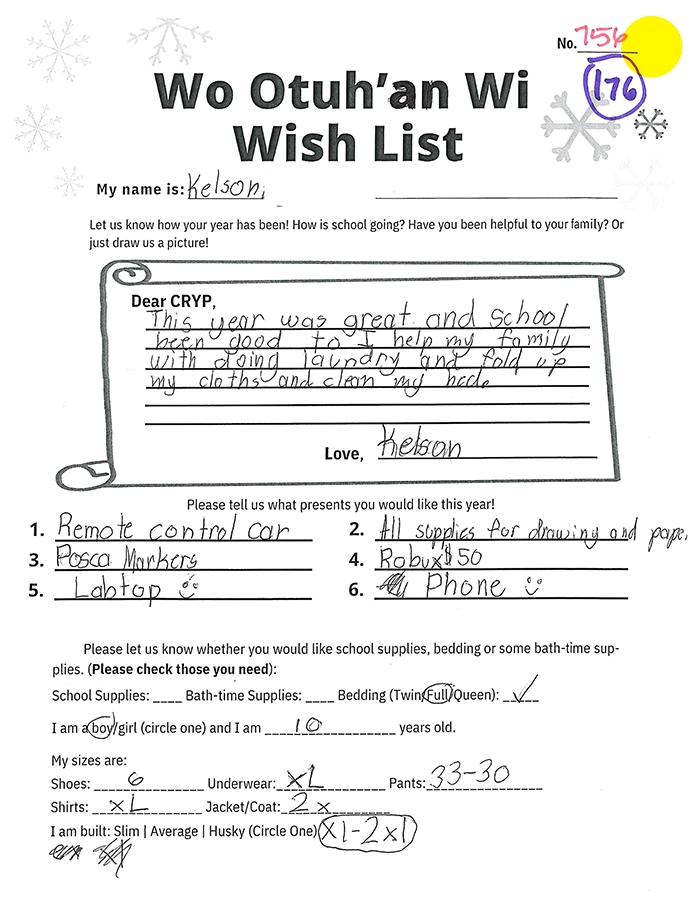 No. 756
176
Wo Otuh'an Wi
Wish List
My name is: Kelson,
Let us know how your year has been! How is school going? Have you been helpful to your family? Or
just draw us a picture!
Dear CRYP,
This year was great and school
been good to I help my family
with doing laundry and fold up
my cloths and clean my
Love, Kelson
Please tell us what presents you would like this year!
1. Remote control car 2. All supplies for drawing and pape
3. Posca Markers 4. Robux $50
5. Labtop 6. Phone
Please let us know whether you would like school supplies, bedding or some bath-time sup-
plies. (Please check those you need):
School Supplies: ____ Bath-time Supplies: ____ Bedding (Twin/Full/Queen): ✓
I am a boy/girl (circle one) and I am 10 years old.
My sizes are:
Shoes: 6 Underwear: XL Pants: 33-30
Shirts: XL Jacket/Coat: 2x
I am built: Slim | Average | Husky (Circle One) X1-2x1